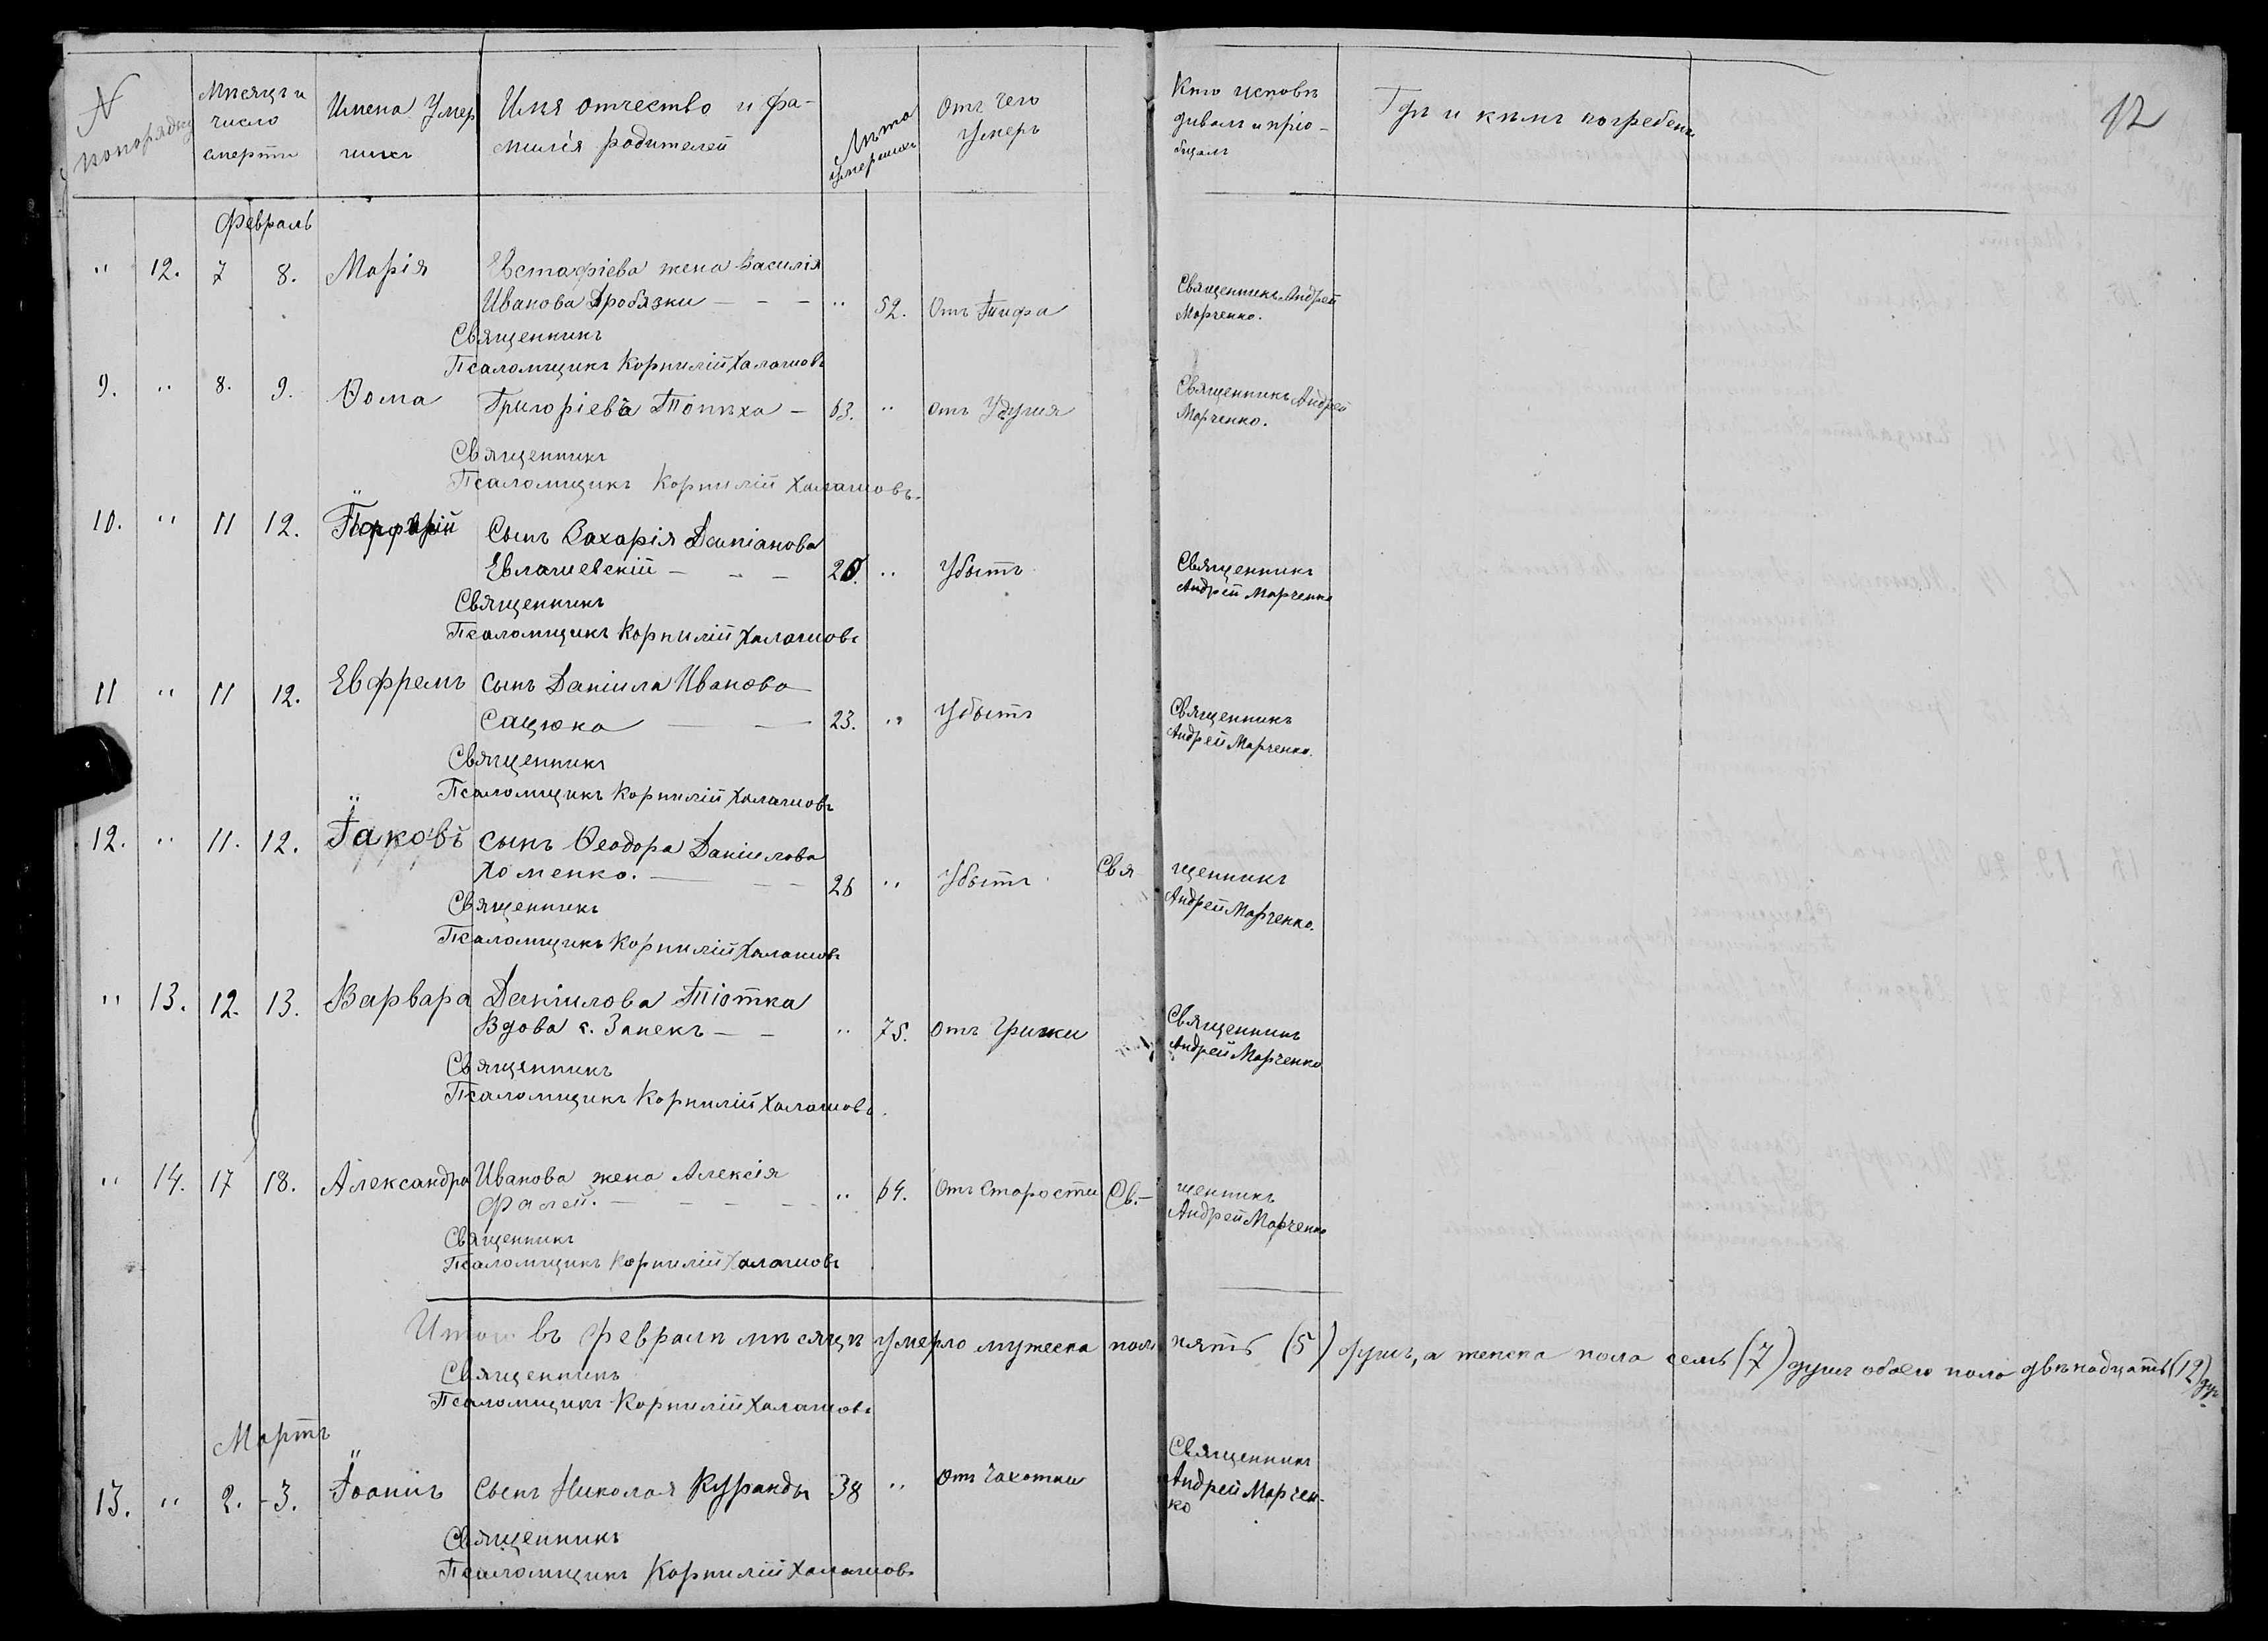 12
N попорядку
Мѣсяцъ и число смерти
Имена Умершихъ
Имя отчество и фамилія родителей
Лѣта умершихъ
Отъ чего умеръ
Кто исповѣдивалъ и пріобщалъ
Гдѣ и кѣмъ погребенъ
Февраль
" 12. 7 8. Марія Евстафіева жена Василія
Иванова Дробязки — — — " 52. Отъ Тифа Священникъ Андрей
Марченко.
Священникъ
Псаломщикъ Корнилій Халашовъ
9. " 8. 9. Ѳома Григоріевъ — 63. " отъ Удушя Священникъ Андрей
Марченко.
Священникъ
Псаломщикъ Корнилій Халашовъ.
10. " 11 12. Порфирій Сынъ Захарія Даміанова
Евлашевскій — — — 20. " Убытъ Священникъ
Андрей Марченко
Священникъ
Псаломщикъ Корнилій Халашовъ
11 " 11 12. Евфремъ сынъ Даніила Иванова
Сацюка — — 23. " Убытъ Священникъ
Андрей Марченко.
Священникъ
Псаломщикъ Корнилій Халашовъ
12. " 11. 12. Іаковъ сынъ Ѳеодора Даніилова
Хоменко. — — — 26 " Убытъ Священникъ
Андрей Марченко.
Священникъ
Псаломщикъ Корнилій Халашовъ
" 13. 12. 13. Варвара Даніилова Тіотка
Вдова с. Запекъ — — " 75. отъ Грижи Священникъ
Андрей Марченко
Священникъ
Псаломщикъ Корнилій Халашовъ.
" 14. 17 18. Александра Иванова жена Алексія
Фалей. — — — — " 64. Отъ Старости Св.—щенникъ
Андрей Марченко
Священникъ
Псаломщикъ Корнилій Халашовъ
Итого въ Февралѣ мѣсяцѣ умерло мужеска пола пять (5) душъ, а женска пола семь (7) душъ обоего пола двѣнадцать (12) ду.
Священникъ
Псаломщикъ Корнилій Халашовъ
Мартъ
13. " 2. -3. Іоаннъ Сынъ Николая Куранды 38 " Отъ Чахотки Священникъ
Андрей Марчен-
ко
Священникъ
Псаломщикъ Корнилій Халашовъ